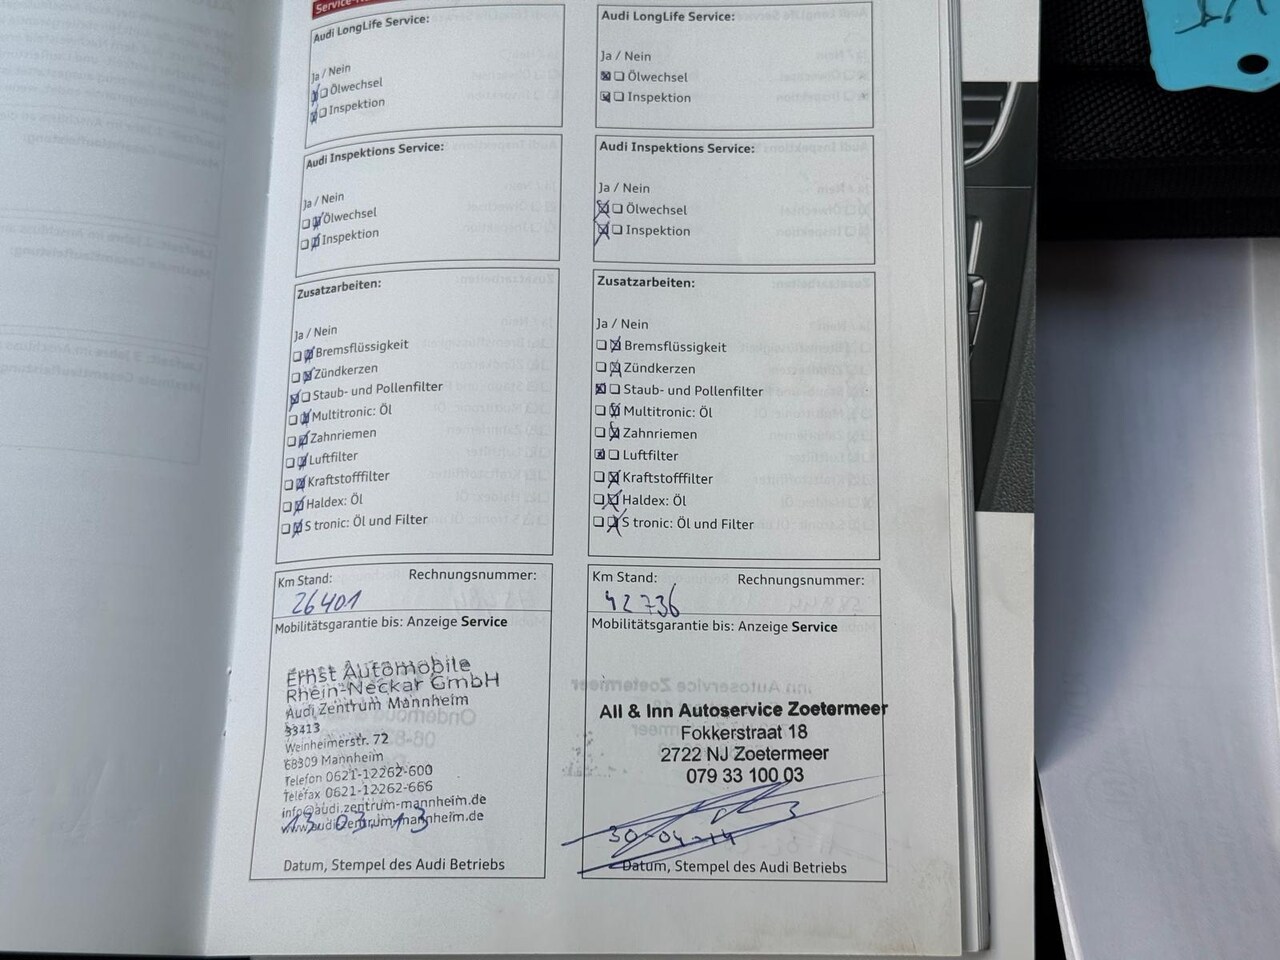 Audi LongLife Service:
Ja / Nein
Ölwechsel
Inspektion
Audi Inspektions Service:
Ja / Nein
Ölwechsel
Inspektion
Zusatzarbeiten:
Ja / Nein
Bremsflüssigkeit
Zündkerzen
Staub- und Pollenfilter
Multitronic: Öl
Zahnriemen
Luftfilter
Kraftstofffilter
Haldex: Öl
S tronic: Öl und Filter
Km Stand: Rechnungsnummer:
26401
Mobilitätsgarantie bis: Anzeige Service
Ernst Automobile
Rhein-Neckar GmbH
Audi Zentrum Mannheim
33413
Weinheimerstr. 72
68309 Mannheim
Telefon 0621-12262-600
Telefax 0621-12262-666
info@audi.zentrum-mannheim.de
www.audi-zentrum-mannheim.de
13.03.13
Datum, Stempel des Audi Betriebs
Audi LongLife Service:
Ja / Nein
Ölwechsel
Inspektion
Audi Inspektions Service:
Ja / Nein
Ölwechsel
Inspektion
Zusatzarbeiten:
Ja / Nein
Bremsflüssigkeit
Zündkerzen
Staub- und Pollenfilter
Multitronic: Öl
Zahnriemen
Luftfilter
Kraftstofffilter
Haldex: Öl
S tronic: Öl und Filter
Km Stand: Rechnungsnummer:
42736
Mobilitätsgarantie bis: Anzeige Service
All & Inn Autoservice Zoetermeer
Fokkerstraat 18
2722 NJ Zoetermeer
079 33 100 03
30-04-14
Datum, Stempel des Audi Betriebs